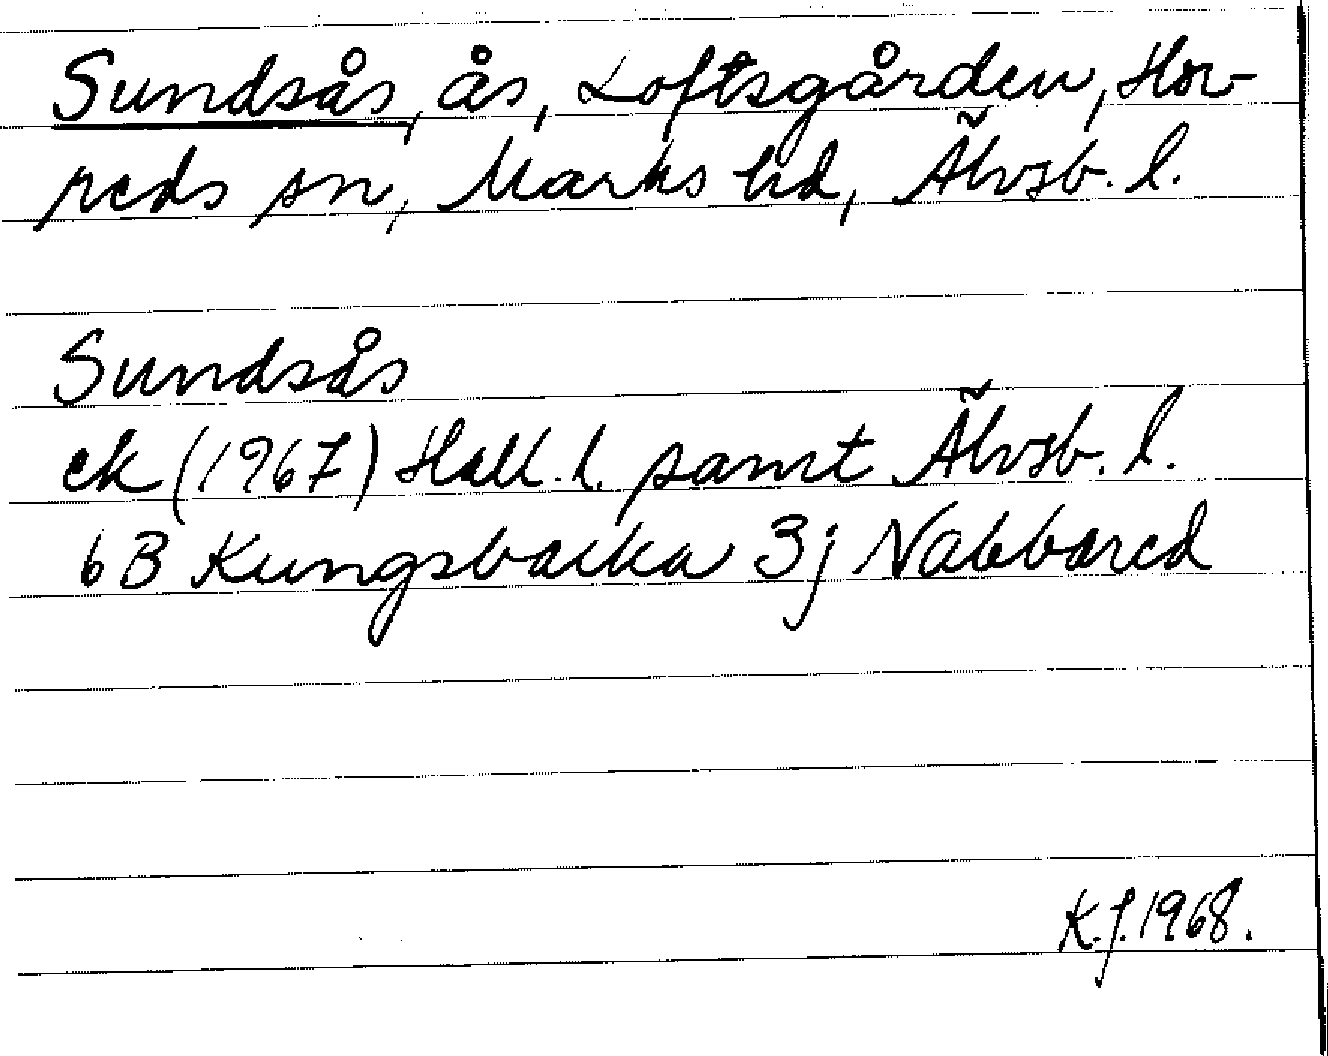 Sundsås, ås, Loftsgården, Hor-
reds sn, Marks hd, Älvsb. l.
Sundsås
ek (1967) Hall. l. samt Älvsb. l.
6B Kungsbacka 3j Nabbared
K.J. 1968.